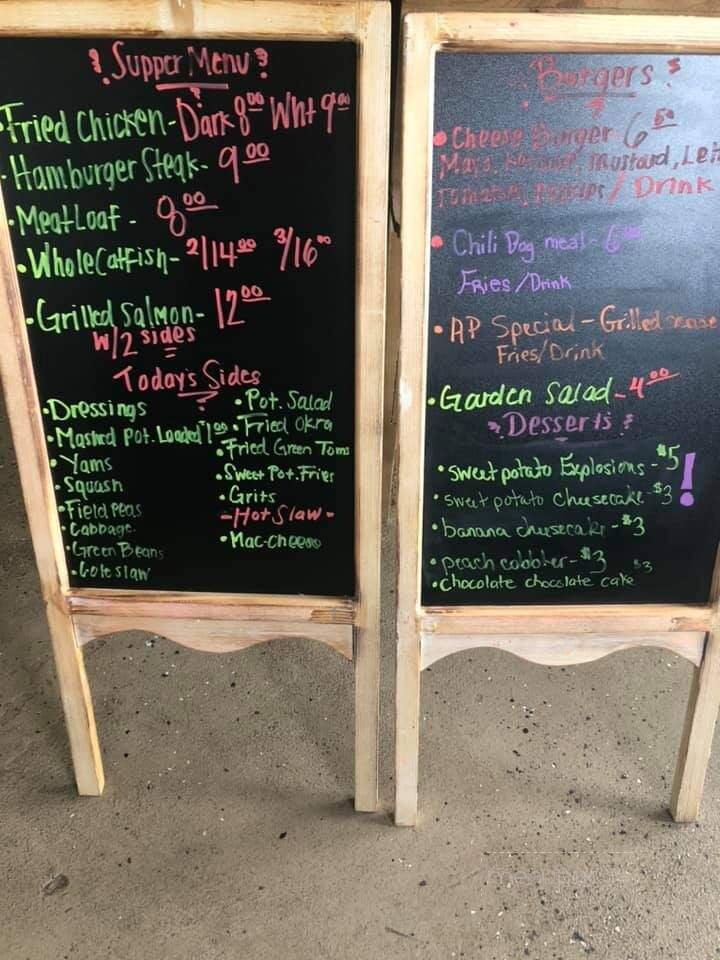 Supper Menu
Fried Chicken - Dark 8.00 Wht 9.00
Hamburger Steak - 9.00
Meat Loaf - 8.00
Whole Catfish - 2/14.00 3/16.00
Grilled Salmon - 12.00
W/2 sides
Today's Sides
Dressings
Mashed Pot. Loaded
Yams
Squash
Field Peas
Cabbage
Green Beans
Coleslaw
Pot. Salad
Fried Okra
Fried Green Toms
Sweet Pot. Fries
Grits
- Hot Slaw -
Mac-cheese
Burgers
Cheese Burger 6.50
Mayo, Mustard,
Tomatoes, / Drink
Chili Dog meal - 6
Fries / Drink
AP Special - Grilled
Fries/Drink
Garden Salad - 4.00
Desserts
sweet potato Explosions - $5!
sweet potato cheesecake - $3
banana cheesecake - $3
peach cobbler - $3
chocolate chocolate cake $3